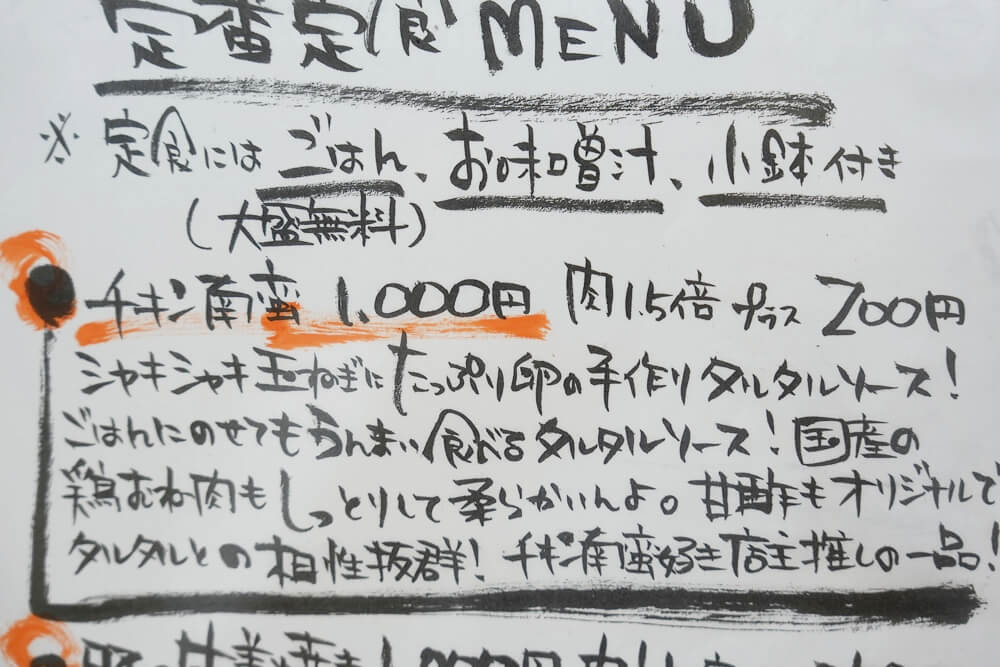 定番定食MENU
※定食にはごはん、お味噌汁、小鉢付き
(大盛無料)
チキン南蛮 1,000円 肉1.5倍 プラス 200円
シャキシャキ玉ねぎにたっぷり卵の手作りタルタルソース!
ごはんにのせてもうんまい食べるタルタルソース!国産の
鶏むね肉もしっとりして柔らかいんよ。甘酢もオリジナルで
タルタルとの相性抜群!チキン南蛮好き店主推しの一品!
1,000円